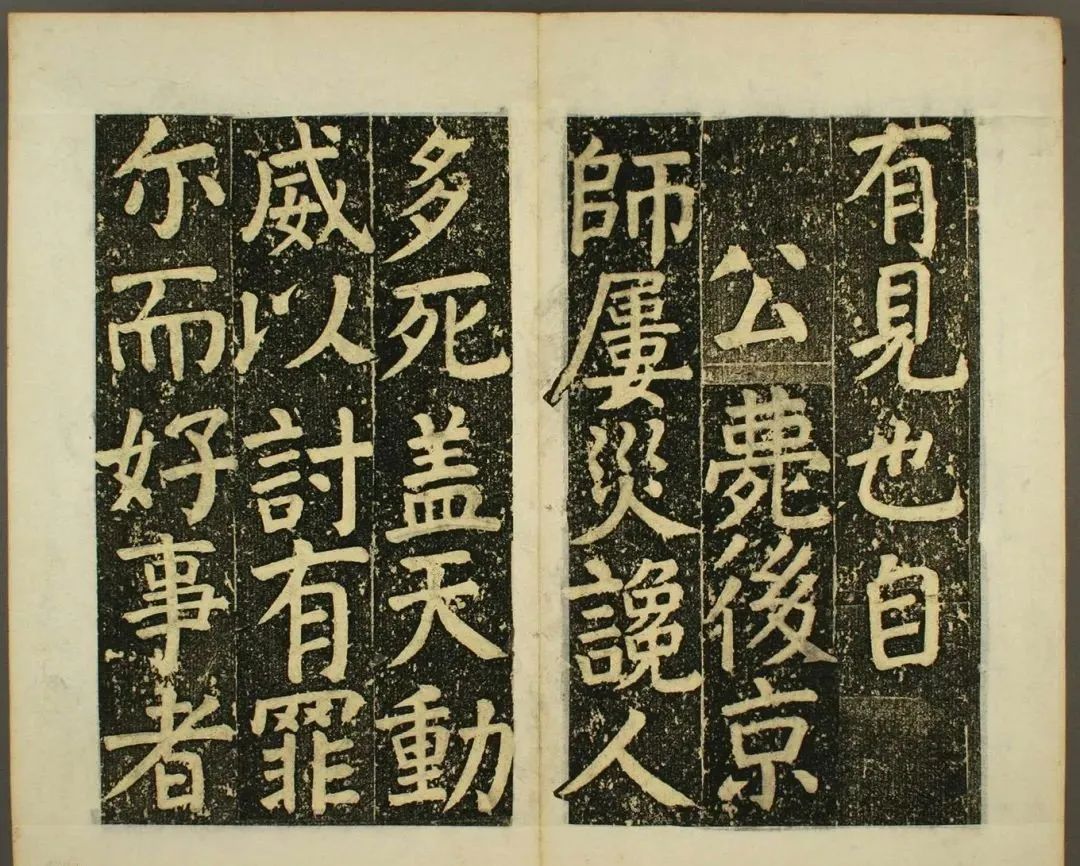 有見也自
公薨後京
師屢災讒人
多死盖天動
威以討有罪
尓而好事者